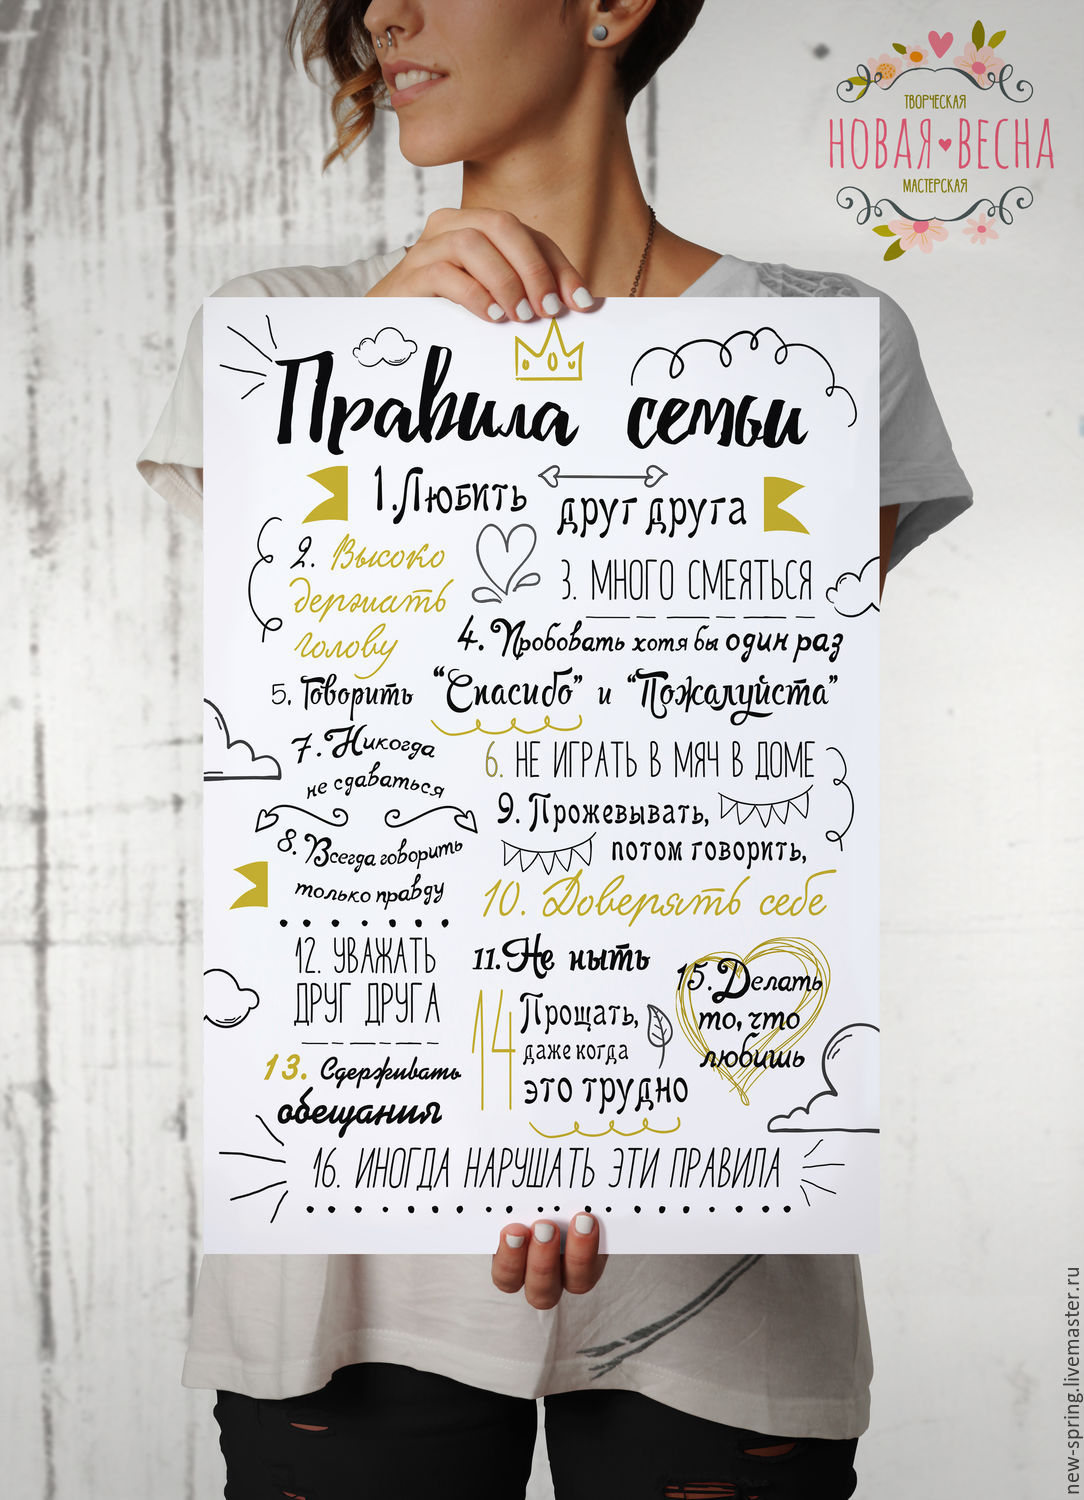 ТВОРЧЕСКАЯ
НОВАЯ ВЕСНА
МАСТЕРСКАЯ
Правила семьи
1. Любить
друг друга
2. Высоко
держать
голову
3. МНОГО СМЕЯТЬСЯ
4. Пробовать хотя бы один раз
5. Говорить "Спасибо" и "Пожалуйста"
7. Никогда
не сдаваться
6. НЕ ИГРАТЬ В МЯЧ В ДОМЕ
9. Прожевывать,
потом говорить,
8. Всегда говорить
только правду
10. Доверять себе
12. УВАЖАТЬ
ДРУГ ДРУГА
11. Не ныть
15. Делать
то, что
любишь
14 Прощать,
даже когда
это трудно
13. Сдерживать
обещания
16. ИНОГДА НАРУШАТЬ ЭТИ ПРАВИЛА
new-spring.livemaster.ru